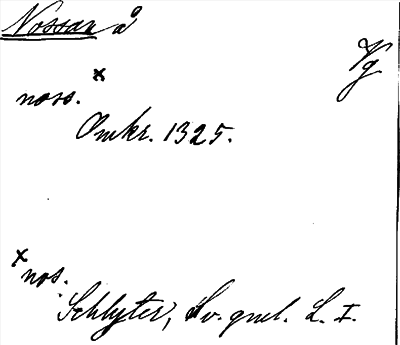 Nossan å
Vg
noss. x
Omkr. 1325.
x nos.
Schlyter, Sv. gml. L. I.